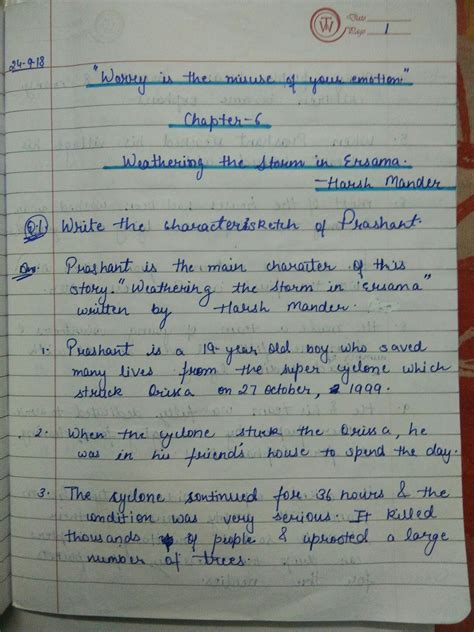 Date
Page 1
24-9-18
"Worry is the misuse of your emotion."
Chapter-6
Weathering the Storm in Ersama.
-Harsh Mander
Q.1 Write the character sketch of Prashant.
Ans. Prashant is the main character of this
story. "Weathering the storm in 'ersama"
written by Harsh Mander.
1. Prashant is a 19-year old boy who saved
many lives from the super cyclone which
struck Orissa on 27 october, 1999.
2. When the cyclone stuck the Orissa, he
was in his friend's house to spend the day.
3. The cyclone continued for 36 hours & the
condition was very serious. It killed
thousands of people & uprooted a large
number of trees.